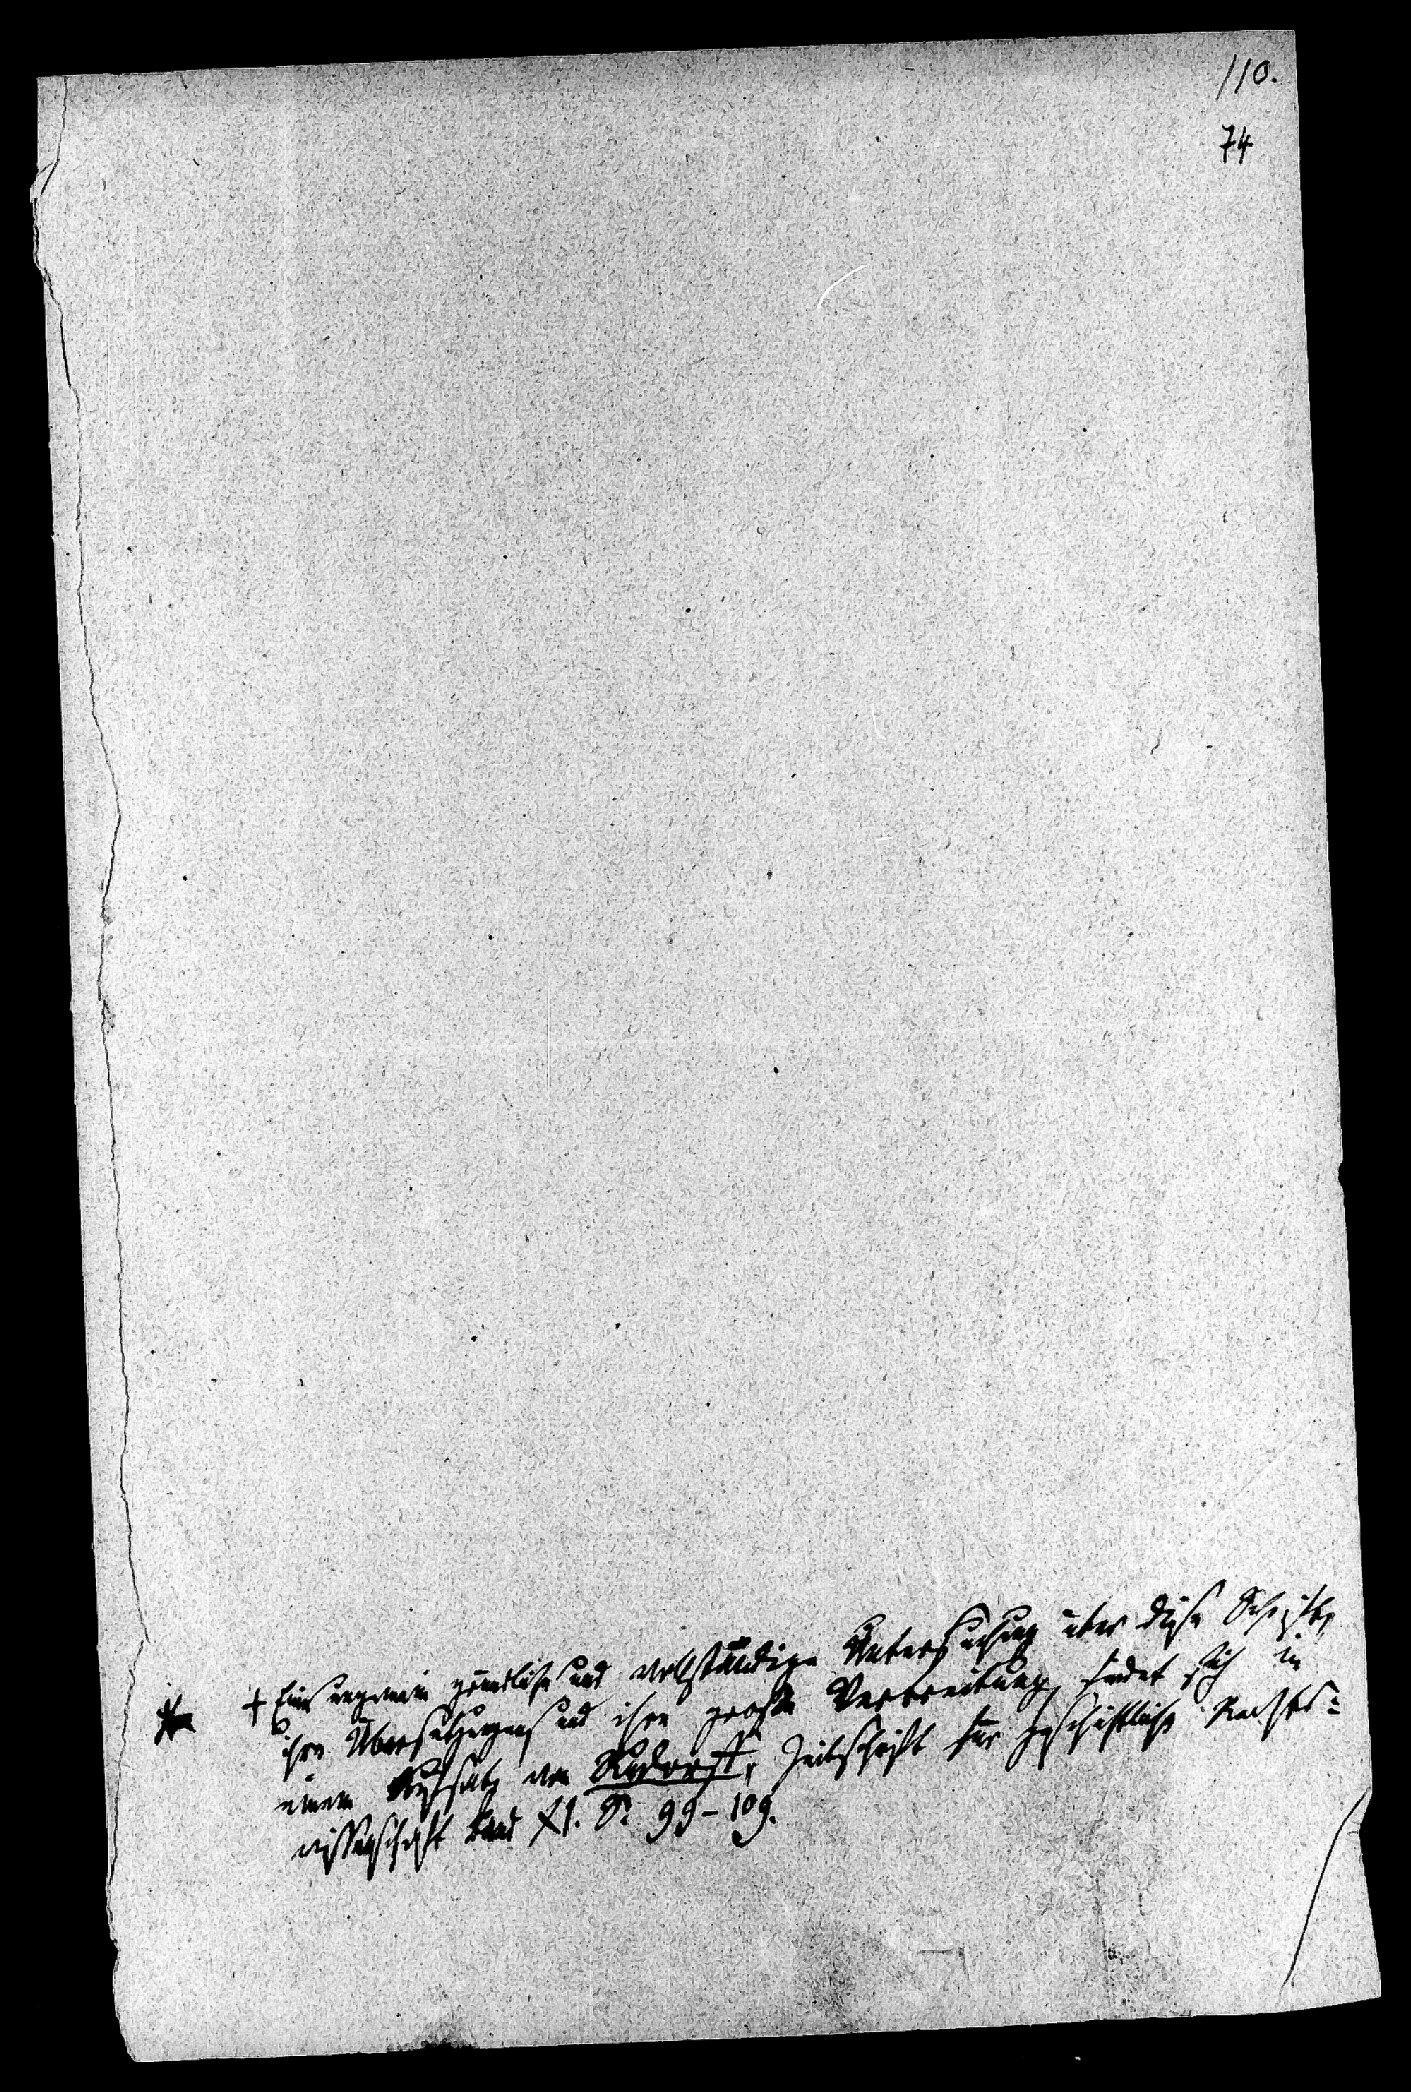 110.
74
+ Eine ungemein gründliche und vollständige Untersuchung über diese Schrift,
ihre Übersetzungen und ihre große Verbreitung, findet sich in
einem Aufsatz von Rudorff, Zeitschrift für geschichtliche Rechts=
wissenschaft Band XI. S. 99-109.